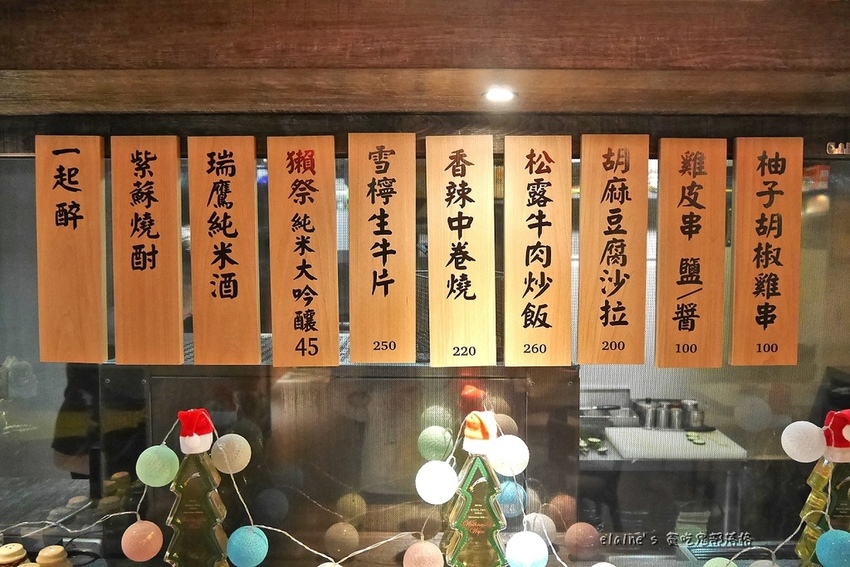 柚子胡椒雞串
100
雞皮串 鹽/醬
100
胡麻豆腐沙拉
200
松露牛肉炒飯
260
香辣中卷燒
220
雪檸生牛片
250
獺祭 純米大吟釀
45
瑞鷹純米酒
紫蘇燒酎
一起醉
elaine's 貪吃鬼部落格